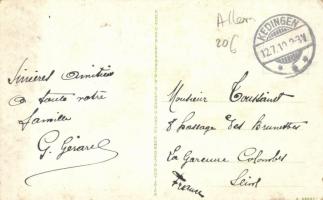 Allem.
206
KEDINGEN
12.7.19.2-3N
Sincères amitiés
à toute votre
famille
G. Gérard
Monsieur Toussaint
8 Passage des Brunettes
La Garenne Colombes
Seine
France